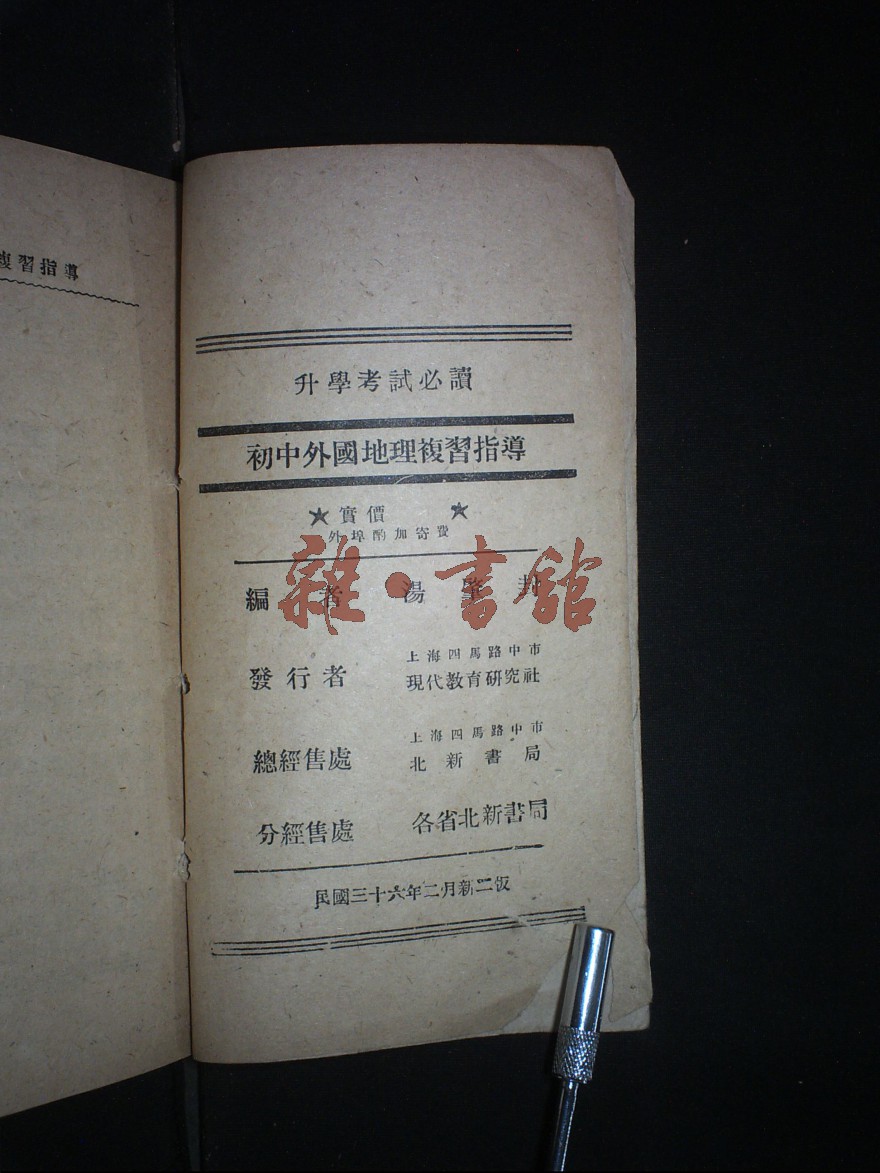 複習指導
升學考試必讀
初中外國地理複習指導
★實價 ★
外埠酌加寄費
編者 湯肇封
雜·書館
上海四馬路中市
發行者 現代教育研究社
上海四馬路中市
總經售處 北新書局
分經售處 各省北新書局
民國三十六年二月新二版